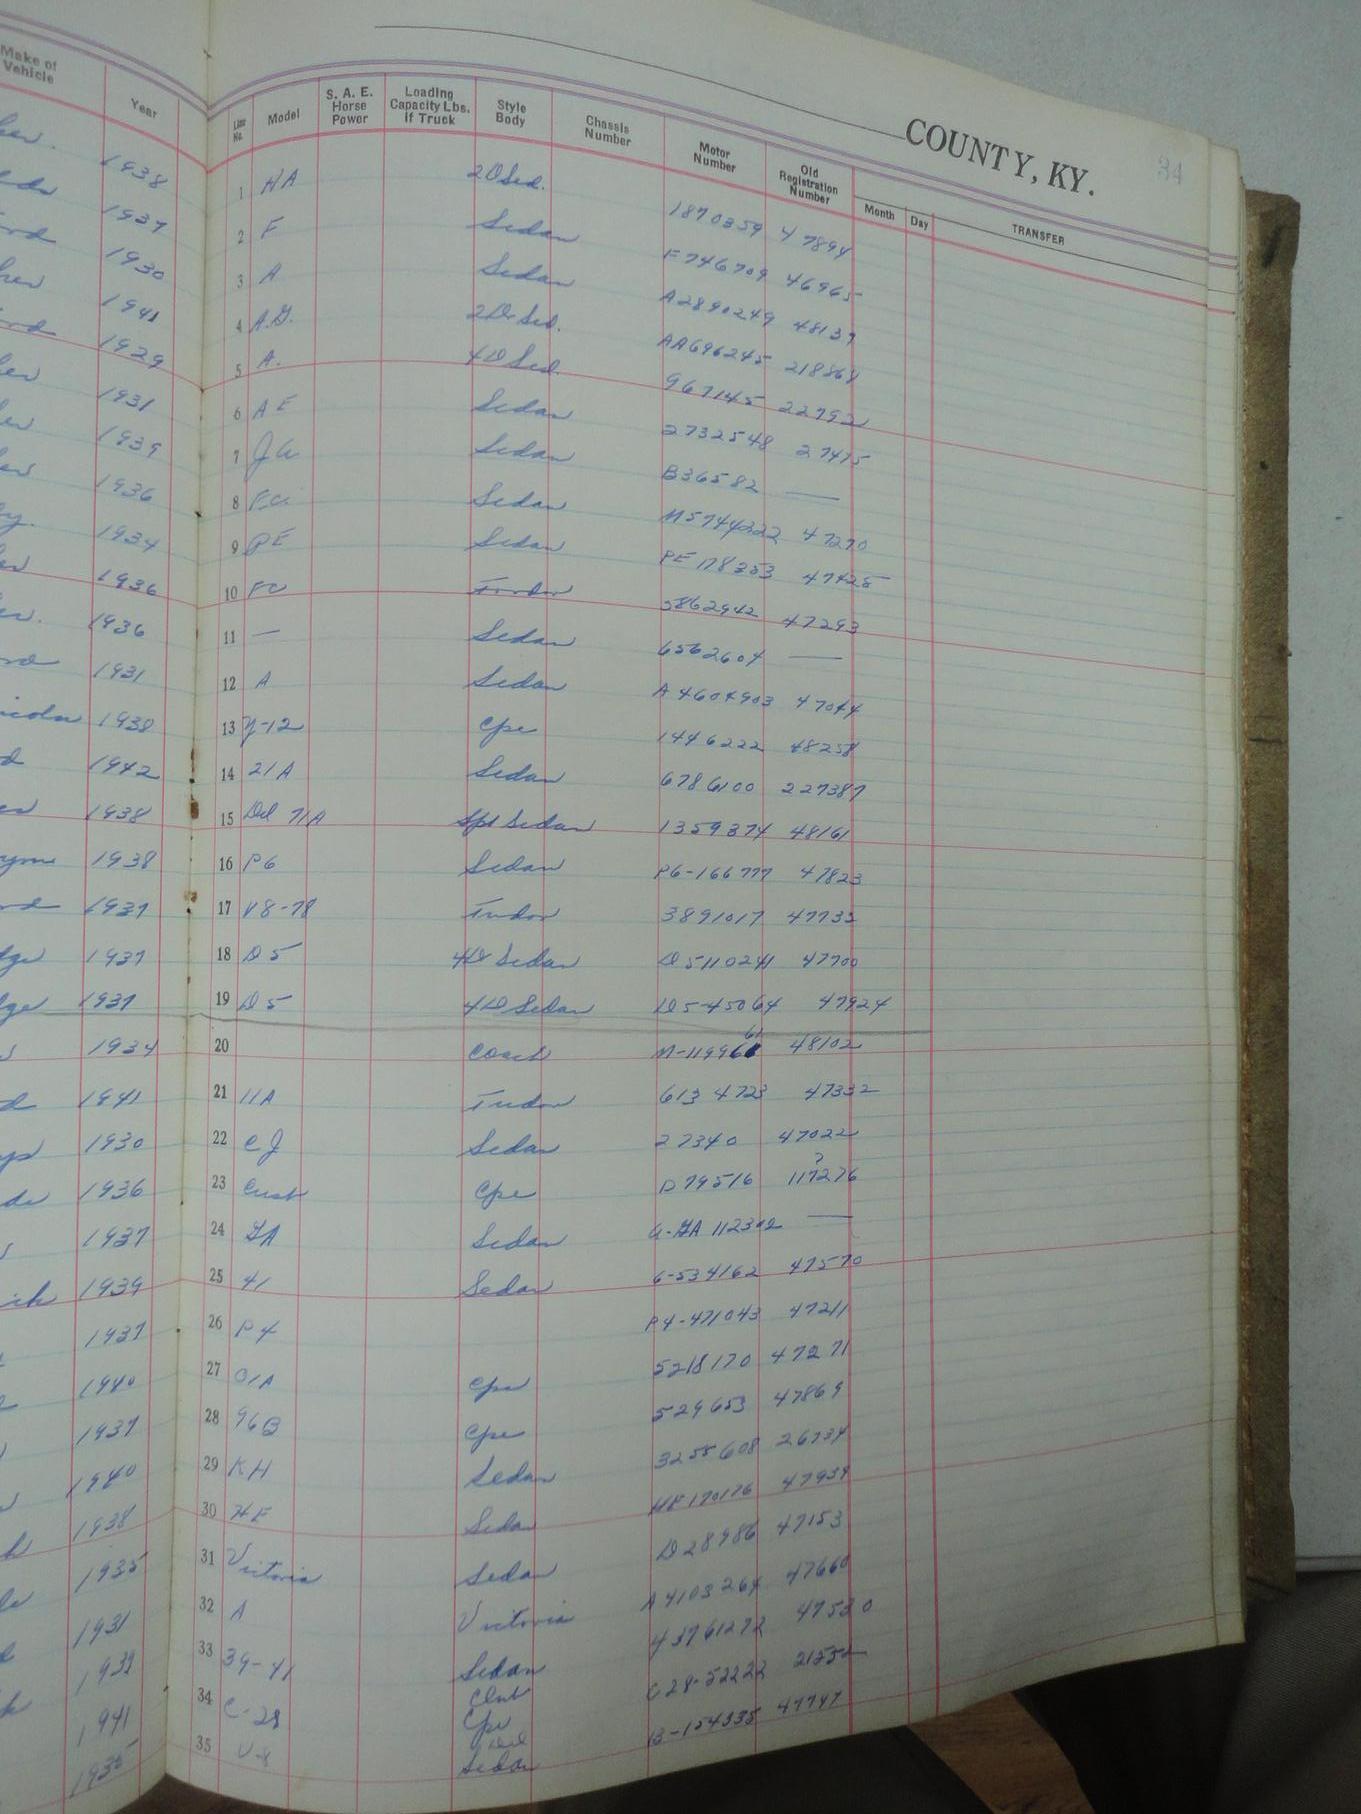 COUNTY, KY. 34
Make of Vehicle Year Line No. Model S. A. E. Horse Power Loading Capacity Lbs. if Truck Style Body Chassis Number Motor Number Old Registration Number Month Day TRANSFER
1938 1 HA 2D Sed. 1870359 47894
1937 2 F Sedan F746709 46965
1930 3 A Sedan A2890249 48139
1941 4 A.G. 2Dr Sed. AA696245 218868
1929 5 A. 4D Sed. 967145 22792
1931 6 AE Sedan 2732548 27475
1939 7 JA Sedan B36582 —
1936 8 Sedan M5744222 47270
1934 9 PE Sedan PE 178353 47425
1936 10 FC Fordor 5862942 47293
1936 11 — Sedan 6562604 —
1931 12 A Sedan A4604903 47044
1938 13 Cpe 1446222 48258
1942 14 21A Sedan 6786100 227387
1938 15 Del 71A Spt Sedan 1359374 48161
1938 16 P6 Sedan P6-166777 47823
1937 17 V8-78 Tudor 3891017 47733
1937 18 D5 4D Sedan D5110241 47700
1937 19 D5 4D Sedan D5-45064 47924
1934 20 Coach 48102
1941 21 11A Tudor 6134723 47332
1930 22 CJ Sedan 27340 47022
1936 23 Cust Cpe D79516 117276
1937 24 GA Sedan —
1939 25 41 Sedan 6-534162 47570
1937 26 P4 P4-471043 47211
1940 27 01A Cpe 5218170 47271
1937 28 96B Cpe 529653 47869
1940 29 KH Sedan 3255608 26734
1938 30 HE Sedan HE170176 47939
1935 31 Victoria Sedan D28986 47153
1931 32 A Victoria A4103264 47660
1939 33 39-41 Sedan 43761272 47530
1941 34 C-28 Club Cpe C28-52222 21252
1935 35 V-8 Sedan 47747